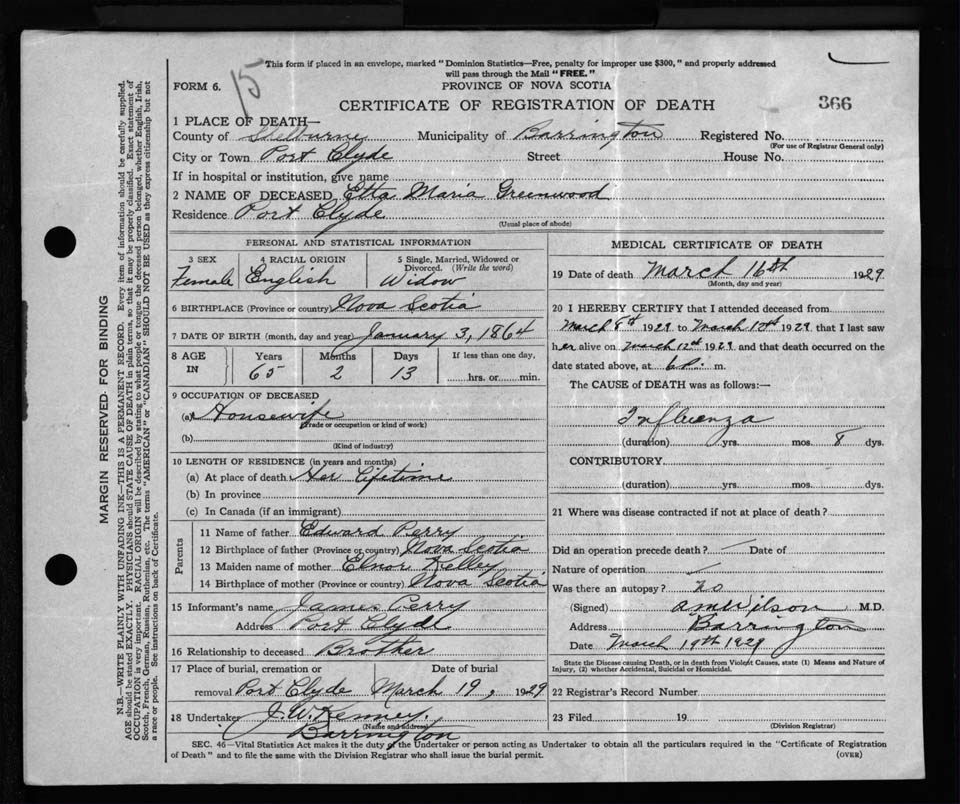 This form if placed in an envelope, marked "Dominion Statistics—Free, penalty for improper use $300," and properly addressed
will pass through the Mail "FREE."
FORM 6.
15
PROVINCE OF NOVA SCOTIA
CERTIFICATE OF REGISTRATION OF DEATH
366
1 PLACE OF DEATH—
County of Shelburne Municipality of Barrington Registered No.
(For use of Registrar General only)
City or Town Port Clyde Street House No.
If in hospital or institution, give name
2 NAME OF DECEASED Etta Maria Greenwood
Residence Port Clyde
(Usual place of abode)
PERSONAL AND STATISTICAL INFORMATION
3 SEX 4 RACIAL ORIGIN 5 Single, Married, Widowed or Divorced. (Write the word)
Female English Widow
6 BIRTHPLACE (Province or country) Nova Scotia
7 DATE OF BIRTH (month, day and year) January 3, 1864
8 AGE IN Years Months Days If less than one day,
65 2 13 hrs. or min.
9 OCCUPATION OF DECEASED
(a) Housewife
(Trade or occupation or kind of work)
(b)
(Kind of industry)
10 LENGTH OF RESIDENCE (in years and months)
(a) At place of death Her Lifetime
(b) In province
(c) In Canada (if an immigrant)
Parents
11 Name of father Edward Perry
12 Birthplace of father (Province or country) Nova Scotia
13 Maiden name of mother Elnor Kelley
14 Birthplace of mother (Province or country) Nova Scotia
15 Informant's name James Perry
Address Port Clyde
16 Relationship to deceased Brother
17 Place of burial, cremation or Date of burial
removal Port Clyde March 19, 1929
18 Undertaker J. W. Kenney.
(Name and address)
Barrington
MEDICAL CERTIFICATE OF DEATH
19 Date of death March 16th 1929
(Month, day and year)
20 I HEREBY CERTIFY that I attended deceased from
March 8th 1929 to March 12th 1929 that I last saw
her alive on March 12th 1929 and that death occurred on the
date stated above, at 6 P. m.
The CAUSE of DEATH was as follows:—
Influenza
(duration) yrs. mos. 8 dys.
CONTRIBUTORY
(duration) yrs. mos. dys.
21 Where was disease contracted if not at place of death?
Did an operation precede death? Date of
Nature of operation
Was there an autopsy? no
(Signed) Wilson M.D.
Address Barrington
Date March 19th 1929
State the Disease causing Death, or in death from Violent Causes, state (1) Means and Nature of
Injury, (2) whether Accidental, Suicidal or Homicidal.
22 Registrar's Record Number
23 Filed 19
(Division Registrar)
SEC. 46—Vital Statistics Act makes it the duty of the Undertaker or person acting as Undertaker to obtain all the particulars required in the "Certificate of Registration
of Death" and to file the same with the Division Registrar who shall issue the burial permit. (OVER)
MARGIN RESERVED FOR BINDING
N.B.—WRITE PLAINLY WITH UNFADING INK—THIS IS A PERMANENT RECORD. Every item of information should be carefully supplied.
AGE should be stated EXACTLY. PHYSICIANS should STATE CAUSE OF DEATH in plain terms, so that it may be properly classified. Exact statement of
OCCUPATION is very important. RACIAL ORIGIN will be described by stating to what people or tongue the deceased person belonged, whether English, Irish,
Scotch, French, German, Russian, Ruthenian, etc. The terms "AMERICAN" or "CANADIAN" SHOULD NOT BE USED as they express citizenship but not
a race or people. See instructions on back of Certificate.